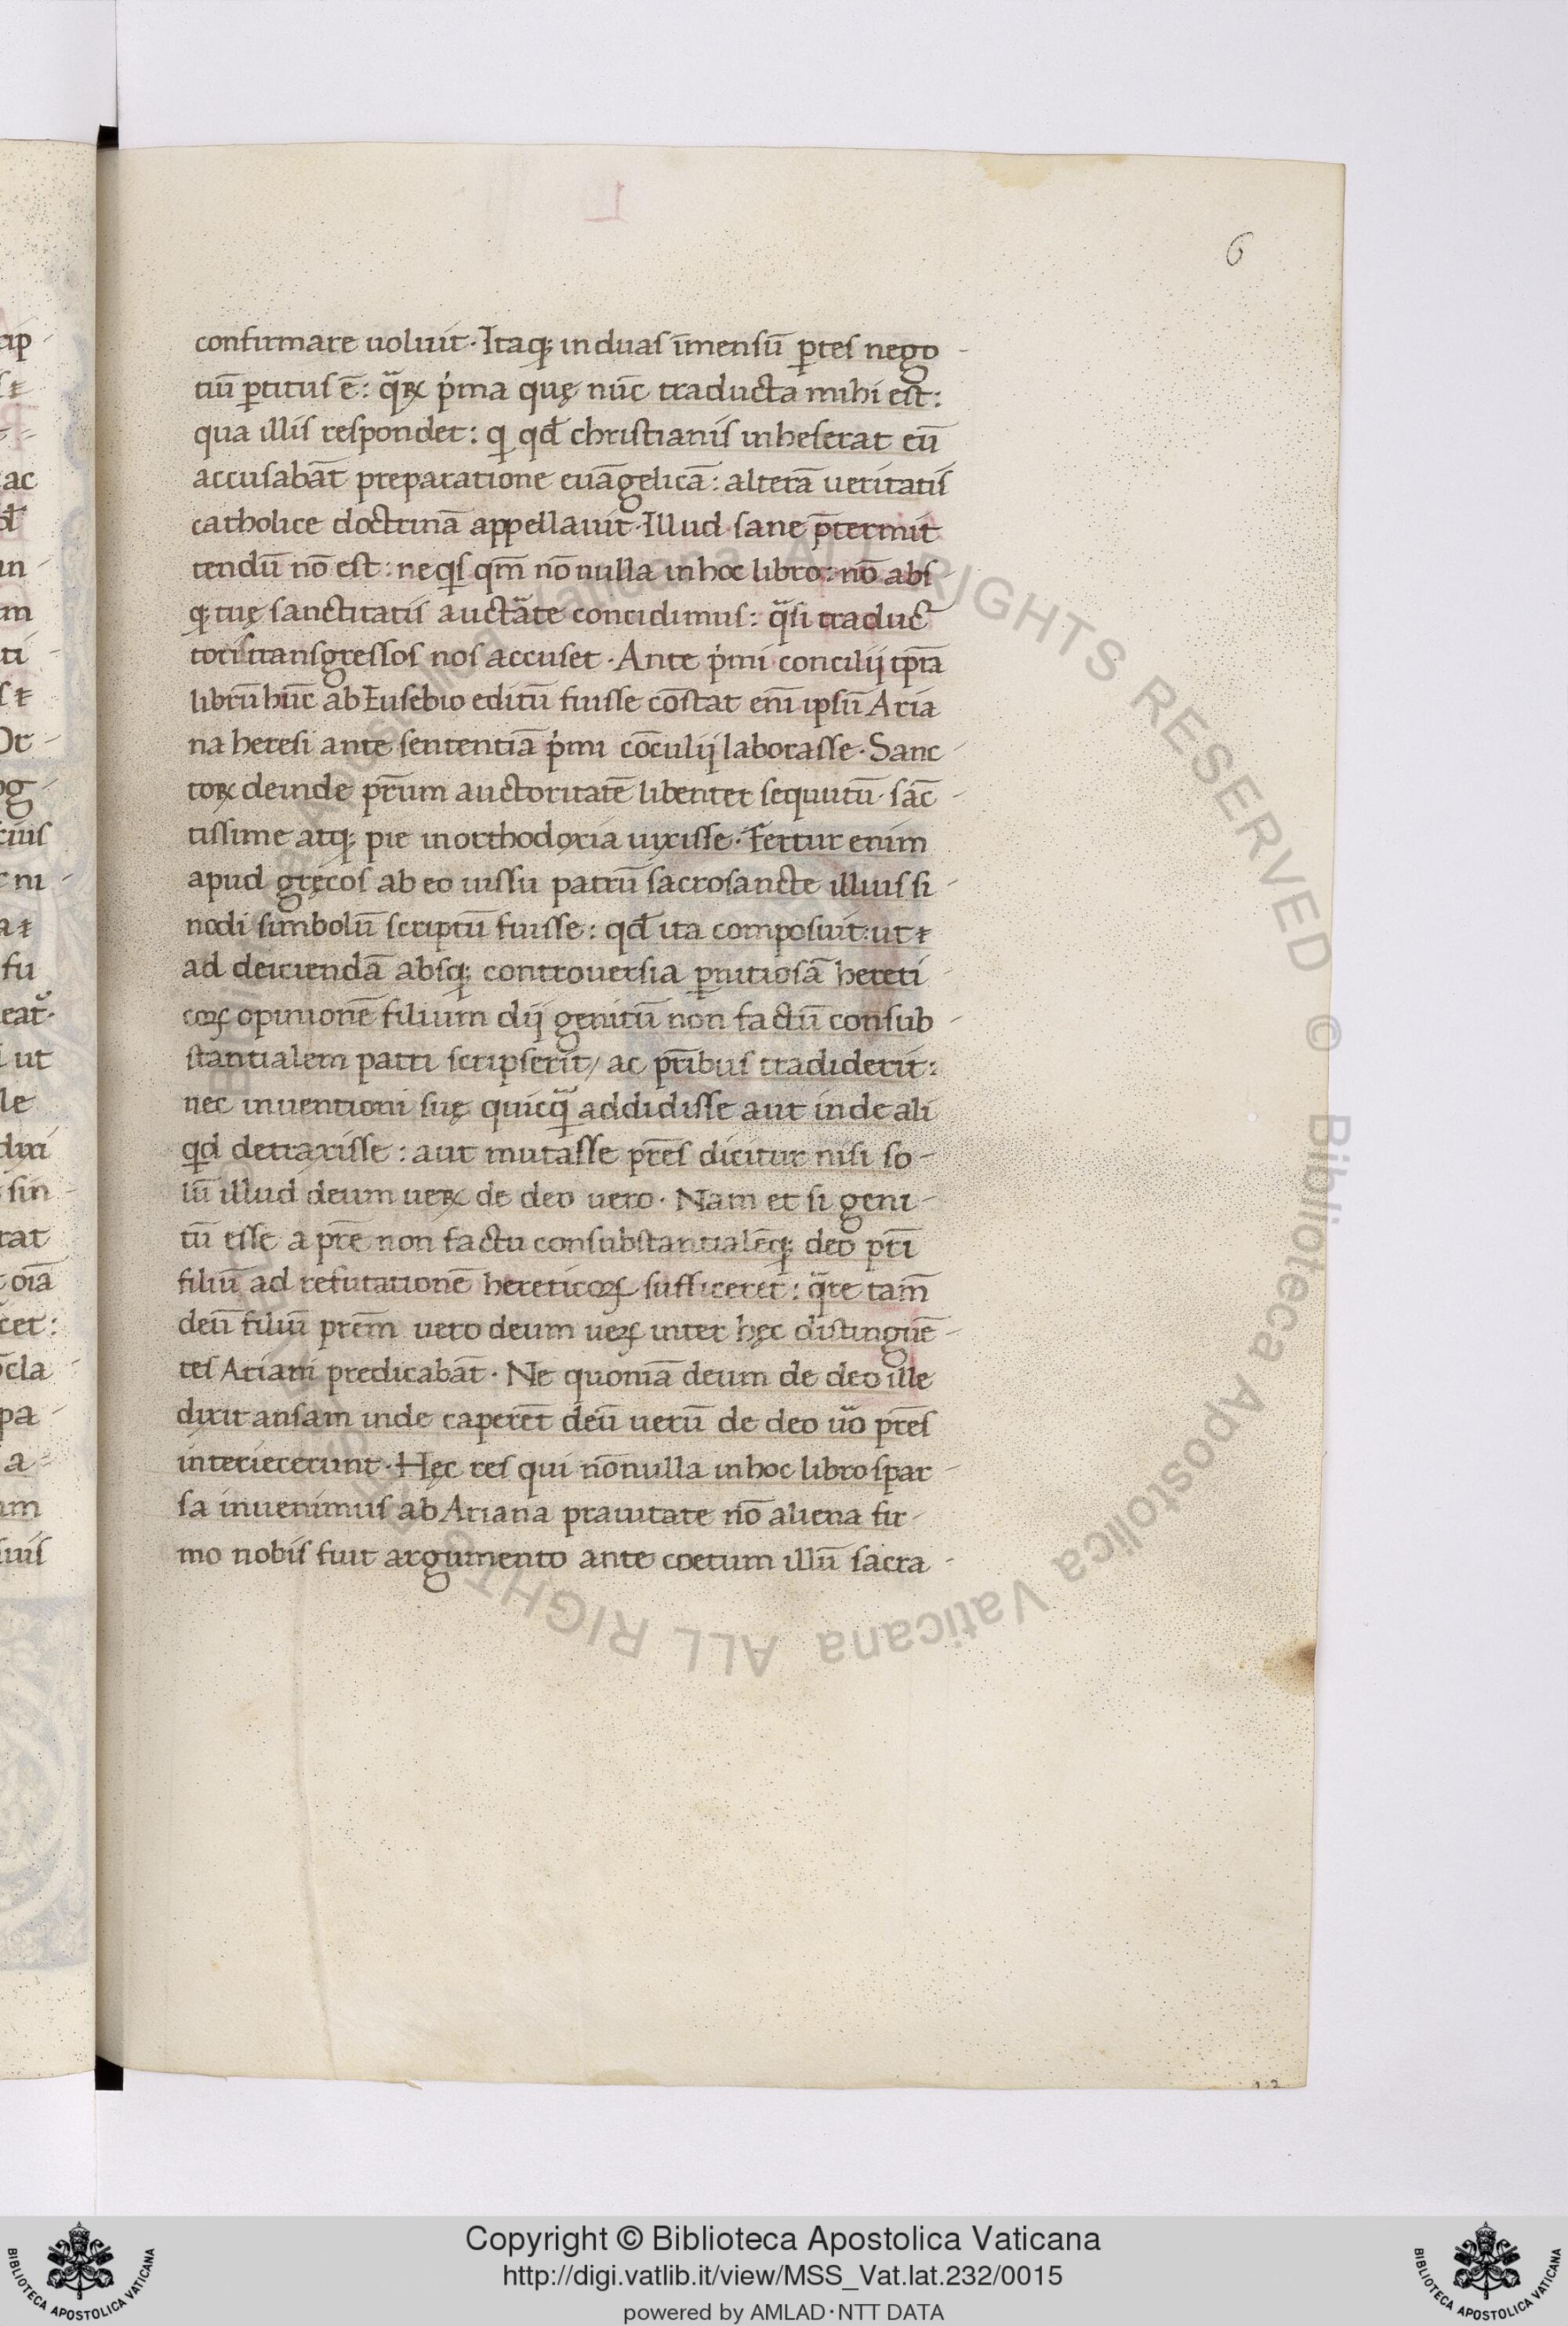 6
confirmare uoluit · Itaq; in duas īmensū ꝑtes nego-
tiū ꝑtitus ē: qͣꝝ pⁱma quę nūc traducta mihi est:
qua illis respondet: qͥ qđ christianis inheserat eū
accusabāt preparatione euāgelicā: alterā ueritatis
catholice doctrinā appellauit · Illud sane p̄termit
tendū nō est: ne qͥs qm̄ nō nulla in hoc libro: nō abs-
q; tuę sanctitatis auctāte concidimus: qͣsi traduct̄
toris transgressos nos accuset · Ante pⁱmi concilij tp̄ra
librū hūc ab Eusebio editū fuisse cōstat eni᷎ ipsū Aria
na heresi ante sententiā pⁱmi cōculij laborasse · Sanc-
toꝝ deinde pr̄um auctoritatē libenter sequutū · sāc-
tissime atq; pie in orthodoxia uixisse · Fertur enim
apud gręcos ab eo iussu patrū sacrosancte illius si-
nodi simbolū scriptū fuisse: qđ ita composuit: ut ⁊
ad deiciendā absq; controuersia ꝑnitiosā hereti-
coꝝ opinionē filium dij genitū non factū consub-
stantialem patri scripserit / ac pr̄ibus tradiderit:
nec inuentioni suę quicqͣ̄ addidisse aut inde ali
qͥd detraxisse: aut mutasse pr̄es dicitur nisi so-
lū illud deum ueꝝ de deo uero · Nam et si geni-
tū esse a pr̄e non factu consubstantialēq; deo pr̄i
filiū ad refutationē hereticoꝝ sufficeret: qͣre tam̄
deū filiū pr̄em uero deum ueꝝ inter hęc distinguē-
tes Ariani predicabāt · Ne quoniā deum de deo ille
dixit ansam inde caperēt deū uerū de deo uͦo pr̄es
interiecerunt · Hęc res qui nōnulla in hoc libro spar-
sa inuenimus ab Ariana prauitate nō aliena fir-
mo nobis fuit argumento ante coetum illū sacra-
Copyright © Biblioteca Apostolica Vaticana
http://digi.vatlib.it/view/MSS_Vat.lat.232/0015
powered by AMLAD·NTT DATA